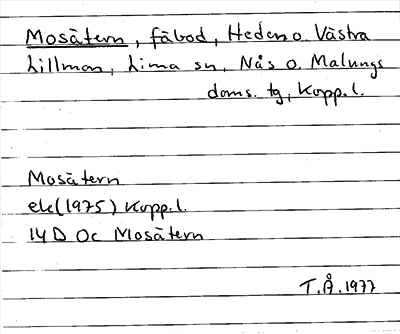 Mosätern, fäbod, Heden o. Västra
Lillmon, Lima sn, Nås o. Malungs
doms. tg, Kopp. l.
Mosätern
ek (1975) Kopp. l.
14D Oc Mosätern
T.Å. 1977